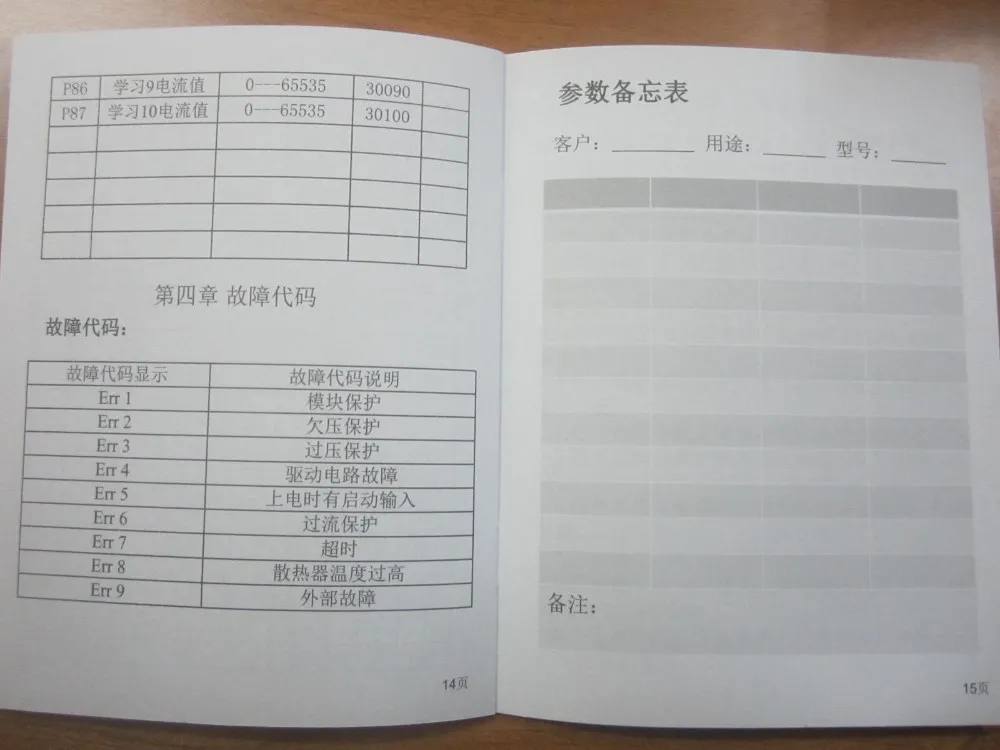 P86 学习9电流值 0---65535 30090
P87 学习10电流值 0---65535 30100
第四章 故障代码
故障代码：
故障代码显示 故障代码说明
Err 1 模块保护
Err 2 欠压保护
Err 3 过压保护
Err 4 驱动电路故障
Err 5 上电时有启动输入
Err 6 过流保护
Err 7 超时
Err 8 散热器温度过高
Err 9 外部故障
14页
参数备忘表
客户：________ 用途：______ 型号：_____
备注：
15页